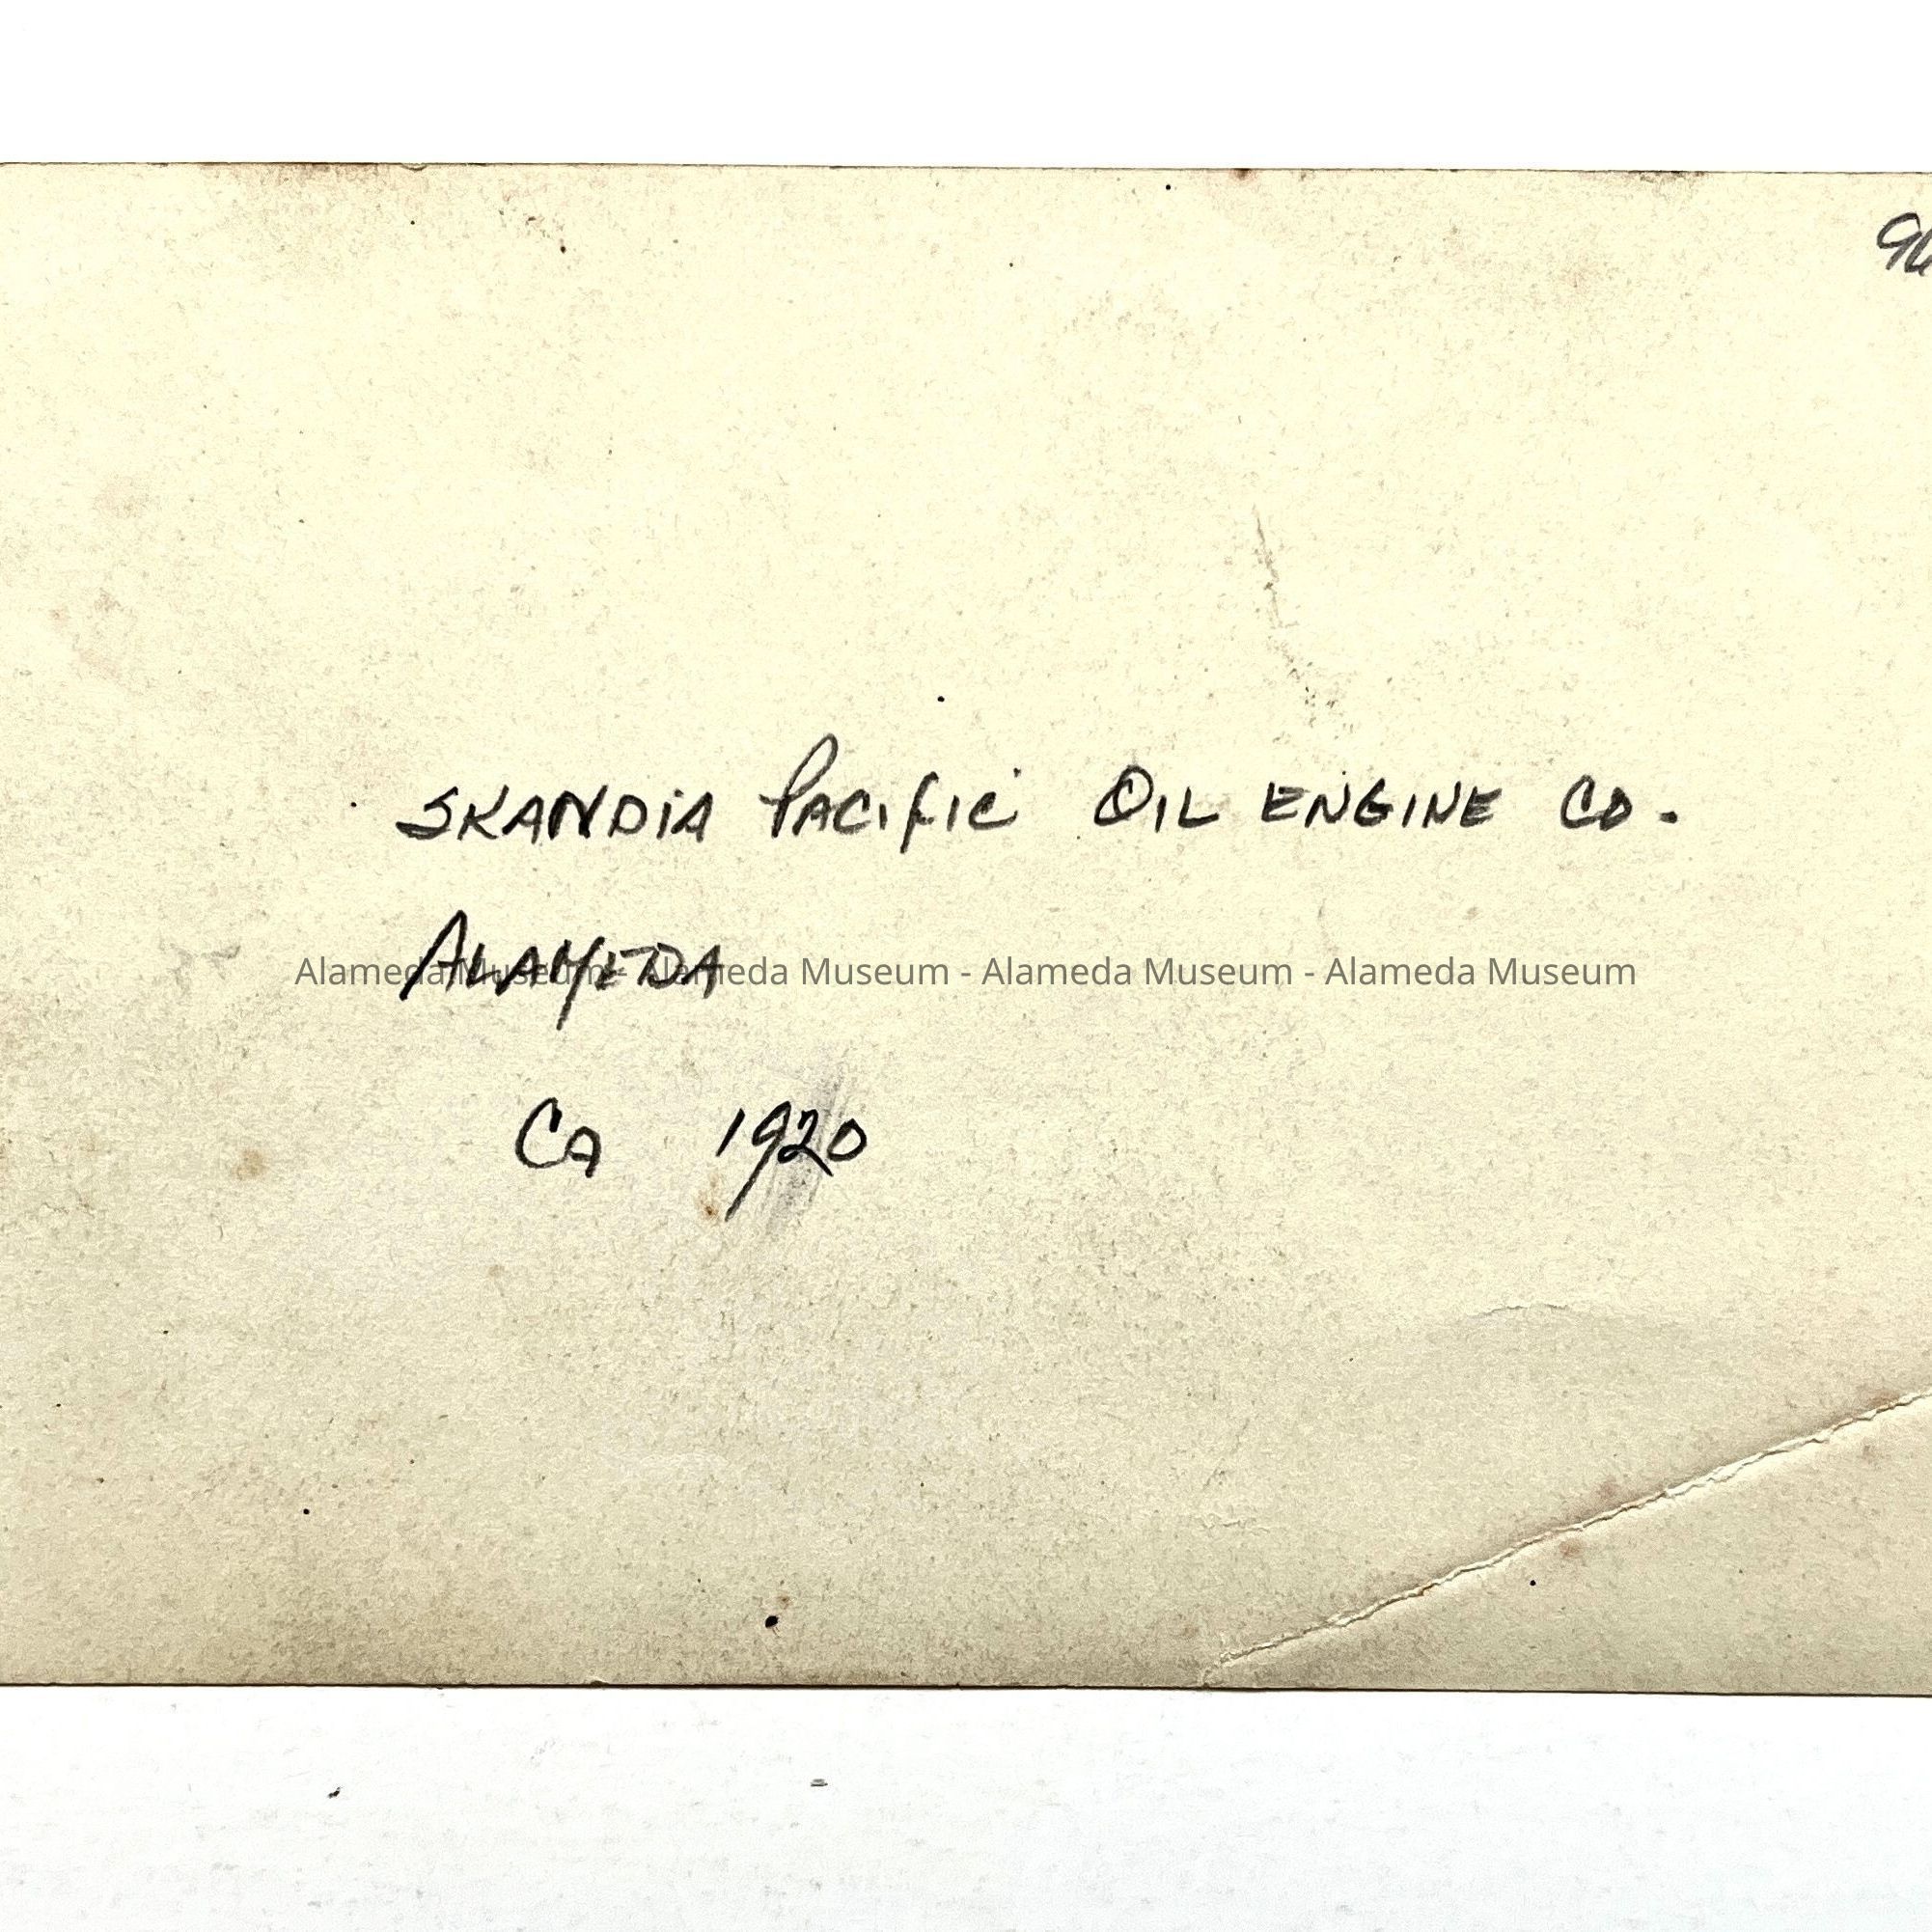 SKANDiA PACIFIC OIL ENGINE CO.
ALAMEDA
Alameda Museum - Alameda Museum - Alameda Museum - Alameda Museum
CA 1920